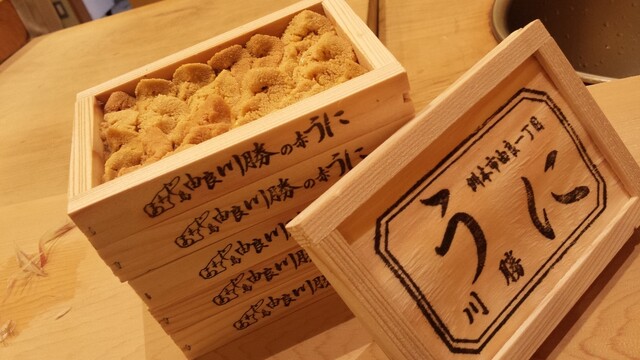 由良川勝の赤うに
由良川勝の赤うに
由良川勝
由良川勝
由良川勝
洲本市由良一丁目
うに
川勝